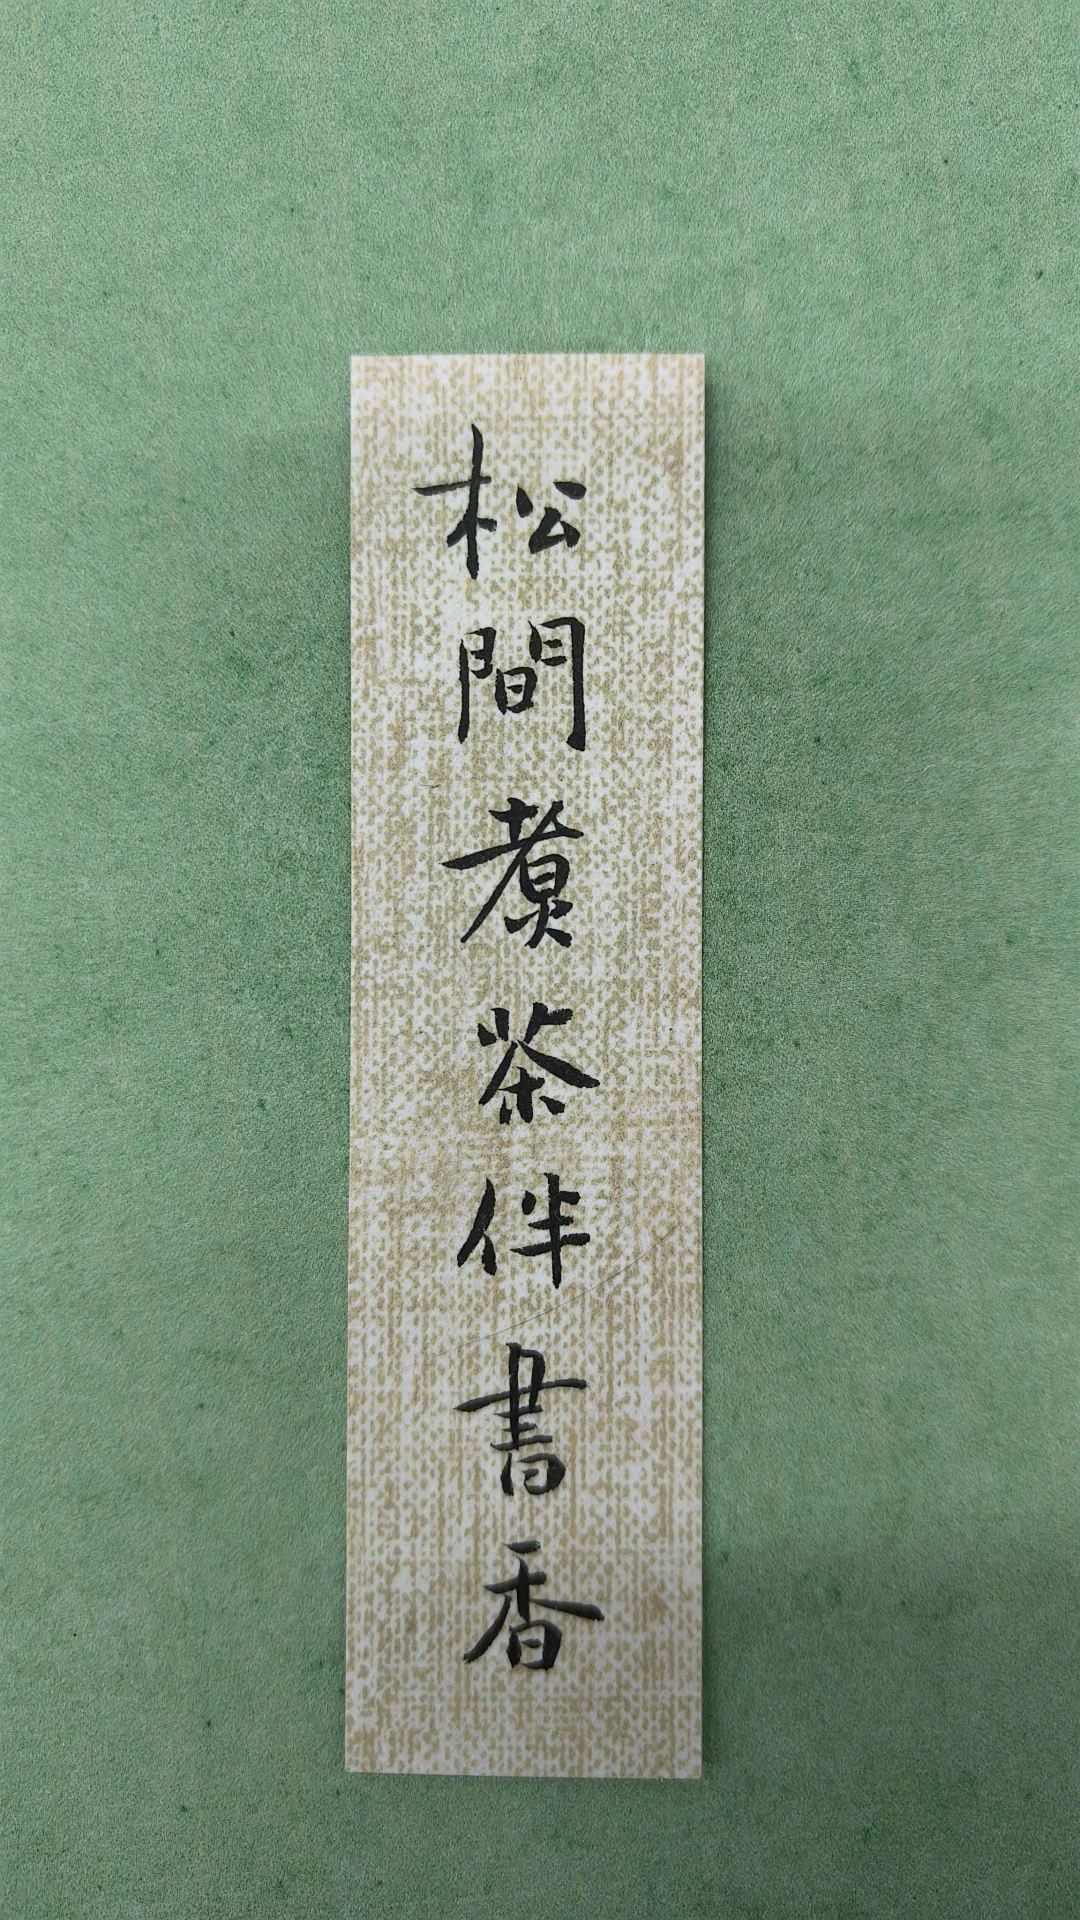 松間煮茶伴書香